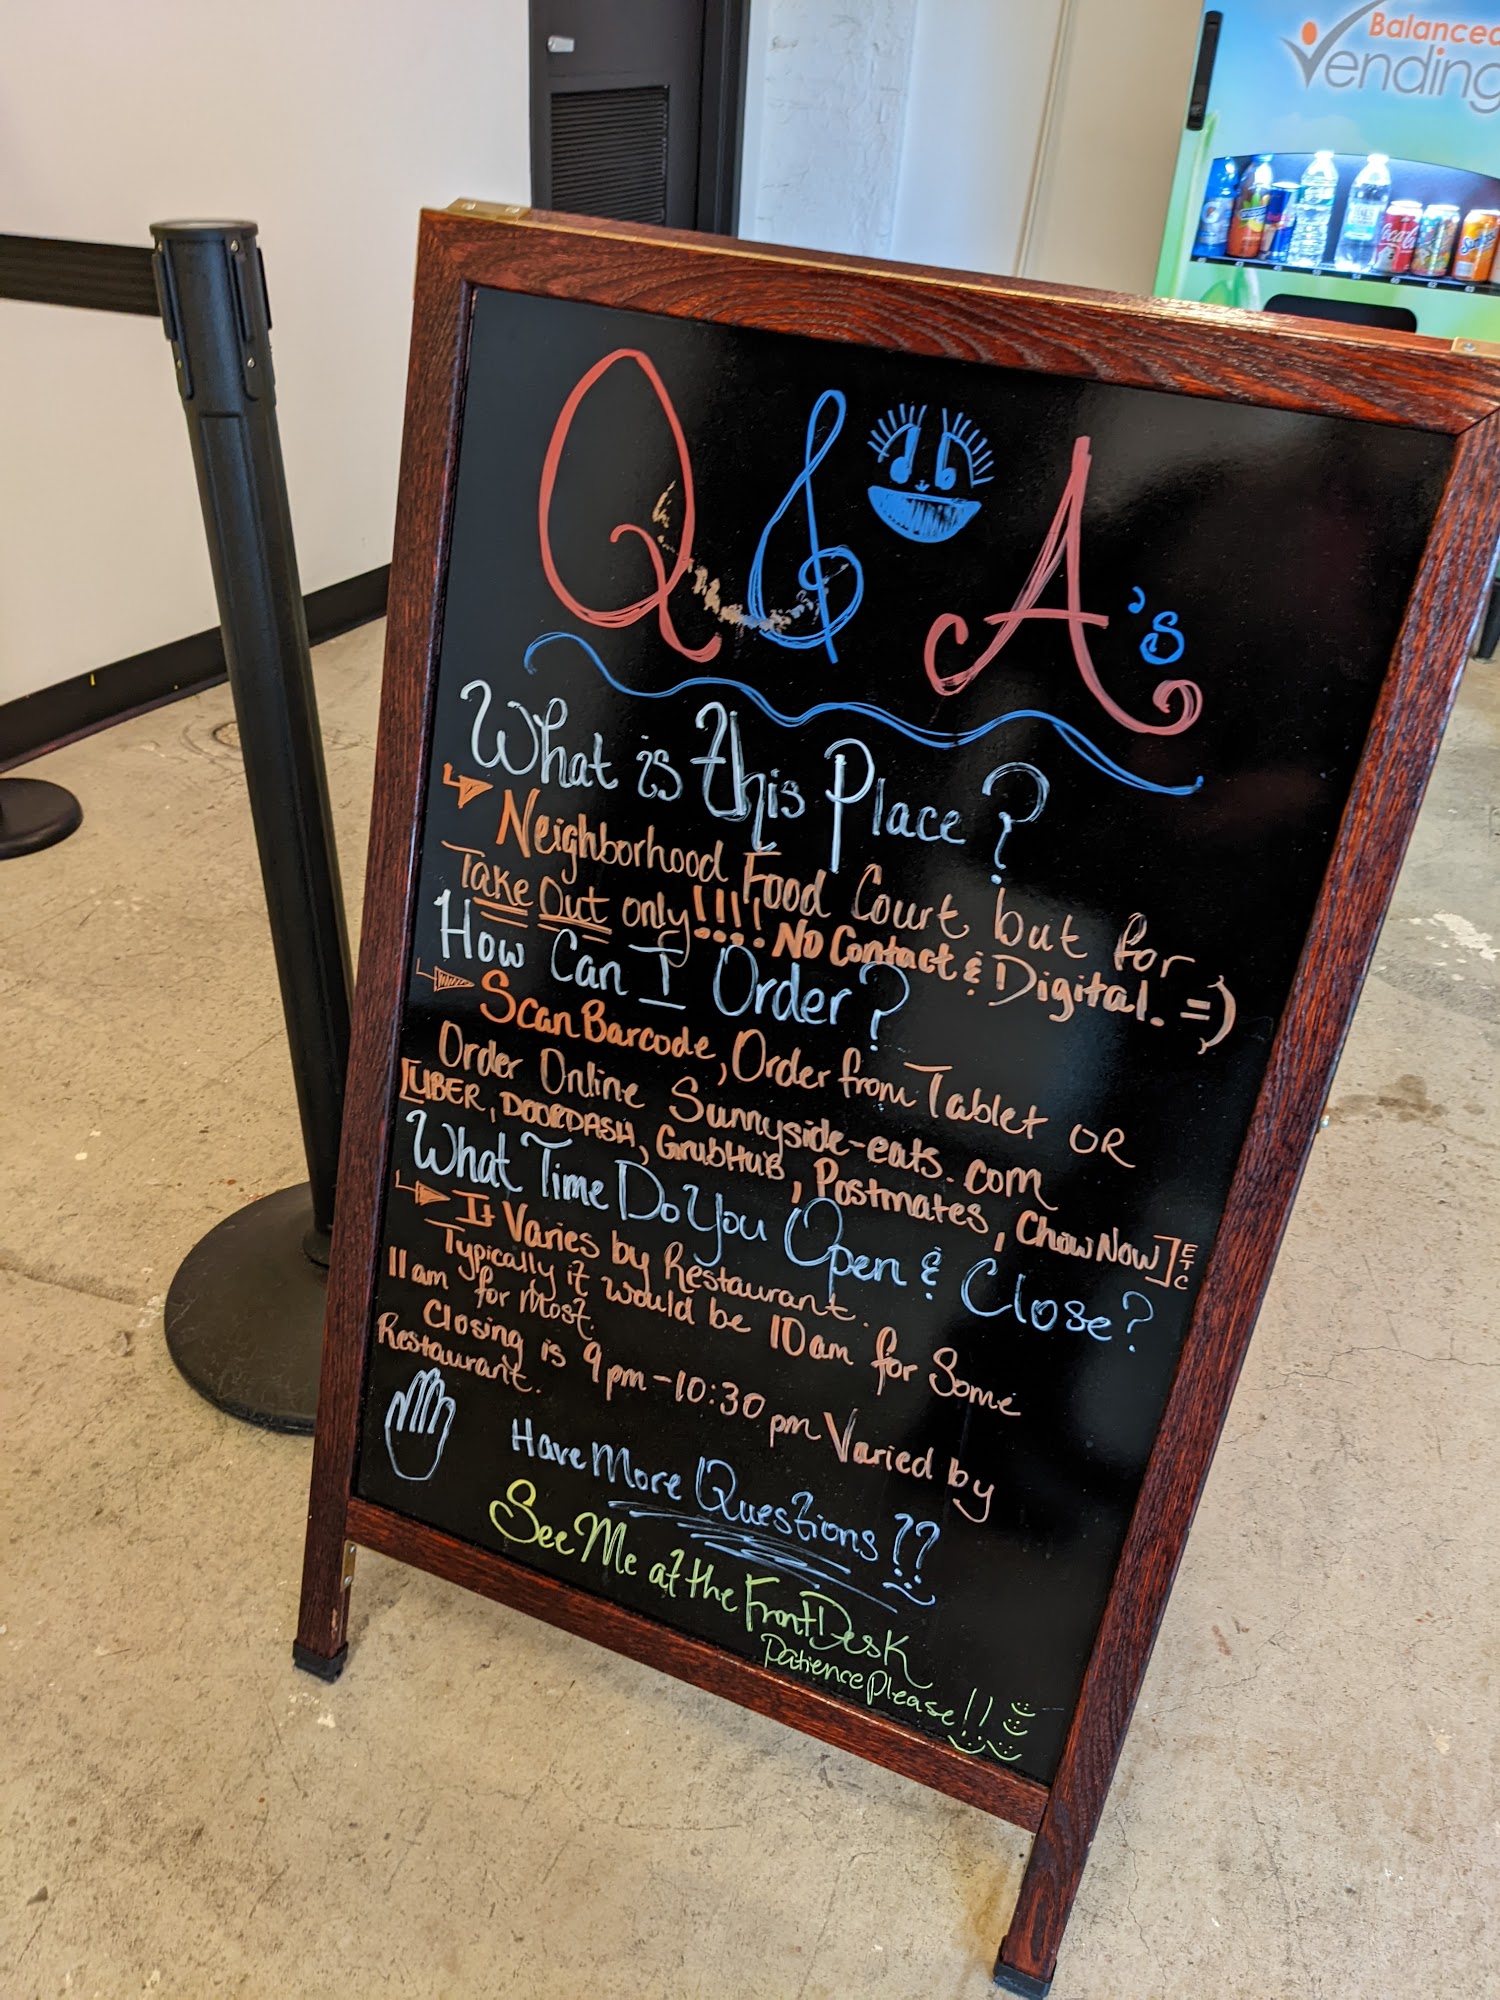 Balanced
Vending
Q & A's
What is this Place?
Neighborhood Food Court, but for
Take Out only!!!! No Contact & Digital. =)
How Can I Order?
Scan Barcode, Order from Tablet OR
Order Online Sunnyside-eats.com
[UBER, DOORDASH, GrubHub, Postmates, ChowNow] ETC
What Time Do You Open & Close?
It Varies by Restaurant.
Typically it would be 10am for Some
11am for most.
Closing is 9pm-10:30pm Varied by
Restaurant.
Have More Questions??
See Me at the Front Desk
Patience Please!!